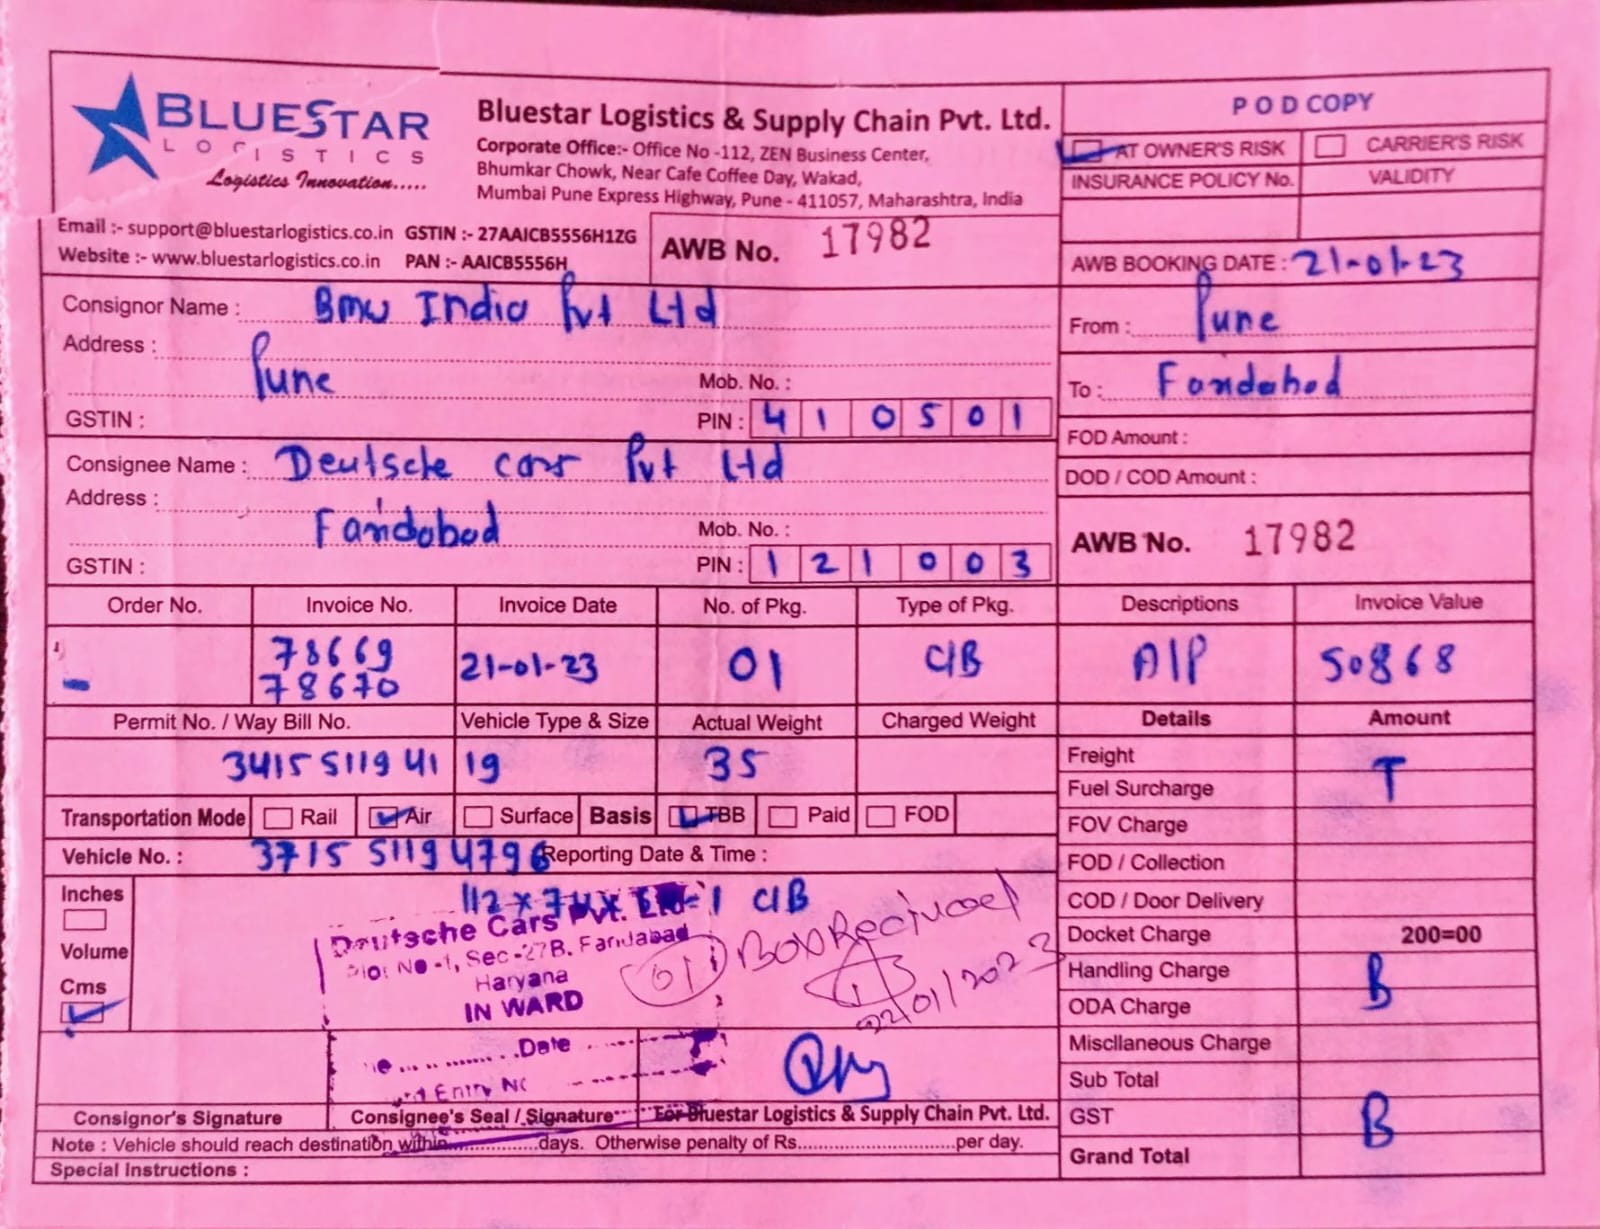 BLUESTAR
LOGISTICS
Logistics Innovation.....
Bluestar Logistics & Supply Chain Pvt. Ltd.
Corporate Office:- Office No -112, ZEN Business Center,
Bhumkar Chowk, Near Cafe Coffee Day, Wakad,
Mumbai Pune Express Highway, Pune - 411057, Maharashtra, India
Email :- support@bluestarlogistics.co.in GSTIN :- 27AAICB5556H1ZG
Website :- www.bluestarlogistics.co.in PAN :- AAICB5556H
AWB No. 17982
POD COPY
AT OWNER'S RISK CARRIER'S RISK
INSURANCE POLICY No. VALIDITY
AWB BOOKING DATE : 21-01-23
From : Pune
To : Faridabad
FOD Amount :
DOD / COD Amount :
AWB No. 17982
Consignor Name : Bmw India Pvt Ltd
Address :
Pune Mob. No. :
GSTIN : PIN : 410501
Consignee Name : Deutsche cars Pvt Ltd
Address :
Faridabad Mob. No. :
GSTIN : PIN : 121003
Order No. Invoice No. Invoice Date No. of Pkg. Type of Pkg. Descriptions Invoice Value
- 78669 21-01-23 01 C/B A/P 50868
78670
Permit No. / Way Bill No. Vehicle Type & Size Actual Weight Charged Weight Details Amount
3415 5119 41 19 35
Transportation Mode Rail Air Surface Basis TBB Paid FOD
Vehicle No. : 3715 5119 4796 Reporting Date & Time :
Inches
Volume
Cms
112 x 74 x - 1 C/B
Deutsche Cars Pvt. Ltd.
Plot No -1, Sec -27B, Faridabad
Haryana
IN WARD
Date
Entry No
01 Box Recived
22/01/2023
Freight T
Fuel Surcharge
FOV Charge
FOD / Collection
COD / Door Delivery
Docket Charge 200=00
Handling Charge B
ODA Charge
Miscllaneous Charge
Sub Total
GST B
Grand Total
Consignor's Signature Consignee's Seal / Signature For Bluestar Logistics & Supply Chain Pvt. Ltd.
Note : Vehicle should reach destination within...............days. Otherwise penalty of Rs..........................per day.
Special Instructions :